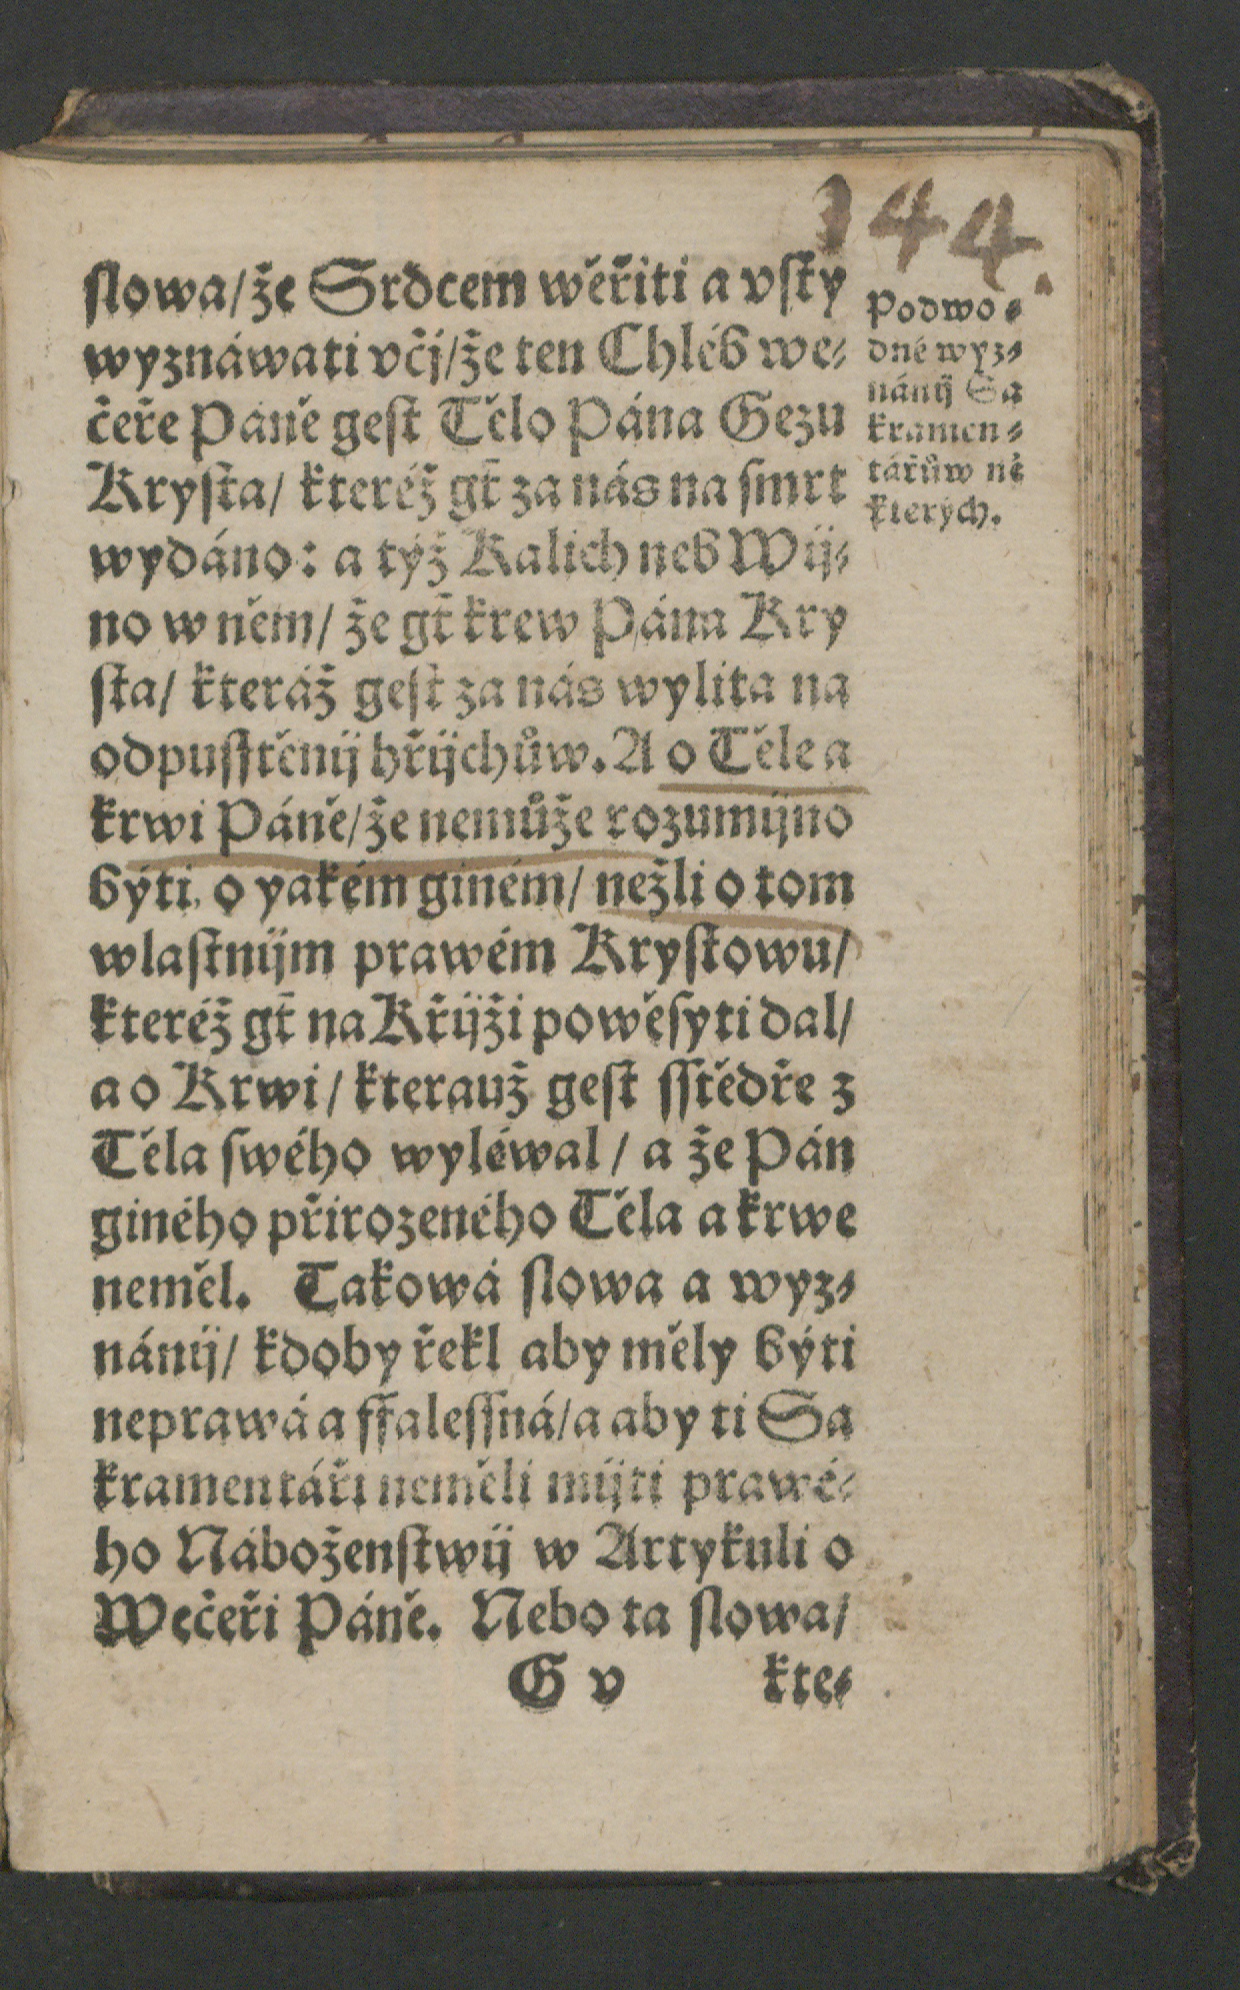 144.
slowa/ že Srdcem wěřiti a vsty
wyznáwati včj/ že ten Chléb we-
čeře Páně gest Tělo Pána Gezu
Krysta/ kteréž gt̄ za nás na smrt
wydáno: a týž Kalich neb Wij-
no w něm/ že gt̄ krew Pána Kry
sta/ kteráž gest za nás wylita na
odpusstěnij hřijchůw. A o Těle a
krwi Páně/ že nemůže rozumijno
býti, o yakém giném/ nežli o tom
wlastnijm prawém Krystowu/
kteréž gt̄ na Křijži powěsyti dal/
a o Krwi/ kterauž gest sstědře z
Těla swého wyléwal/ a že Pán
giného přirozeného Těla a krwe
neměl. Takowá slowa a wyz-
nánij/ kdoby řekl aby měly býti
neprawá a ffalessná/ a aby ti Sa
kramentáři neměli mijti prawé-
ho Náboženstwij w Artykuli o
Wečeři Páně. Nebo ta slowa/
G v kte-
Podwo-
dné wyz-
nánij Sa
kramen-
tářůw ně
kterých.